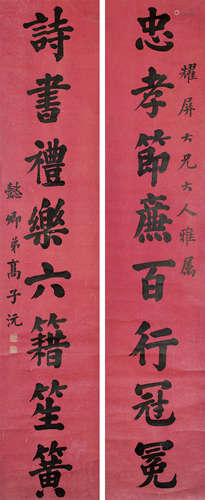 耀屏大兄大人雅属
忠孝節廉百行冠冕
詩書禮樂六籍笙簧
懿卿弟高子沅